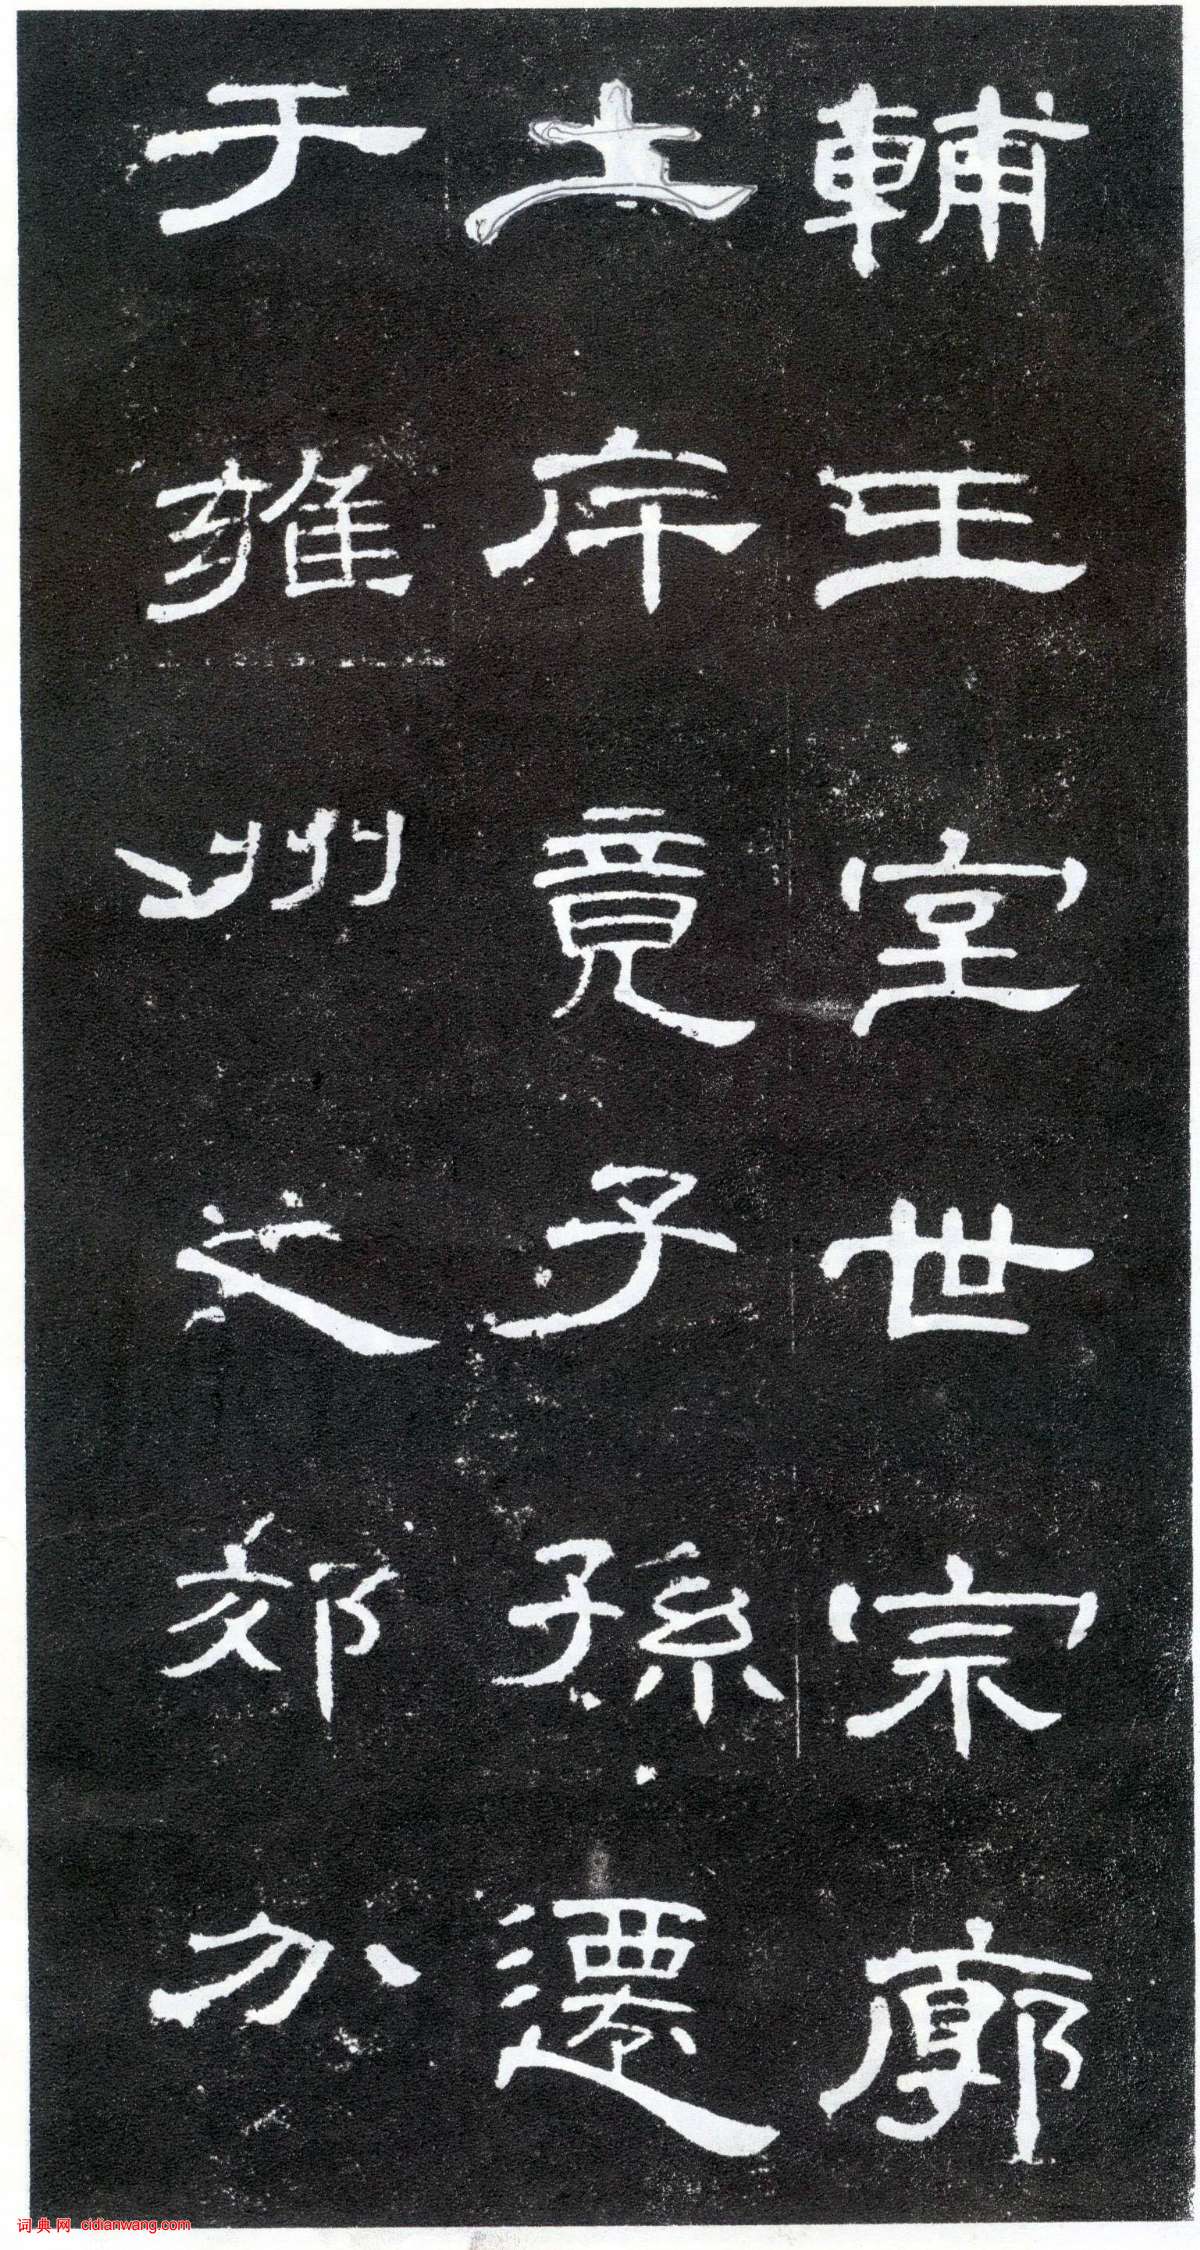 輔王室世宗廓
土斥竟子孫遷
于雍州之郊分
词典网 cidianwang.com